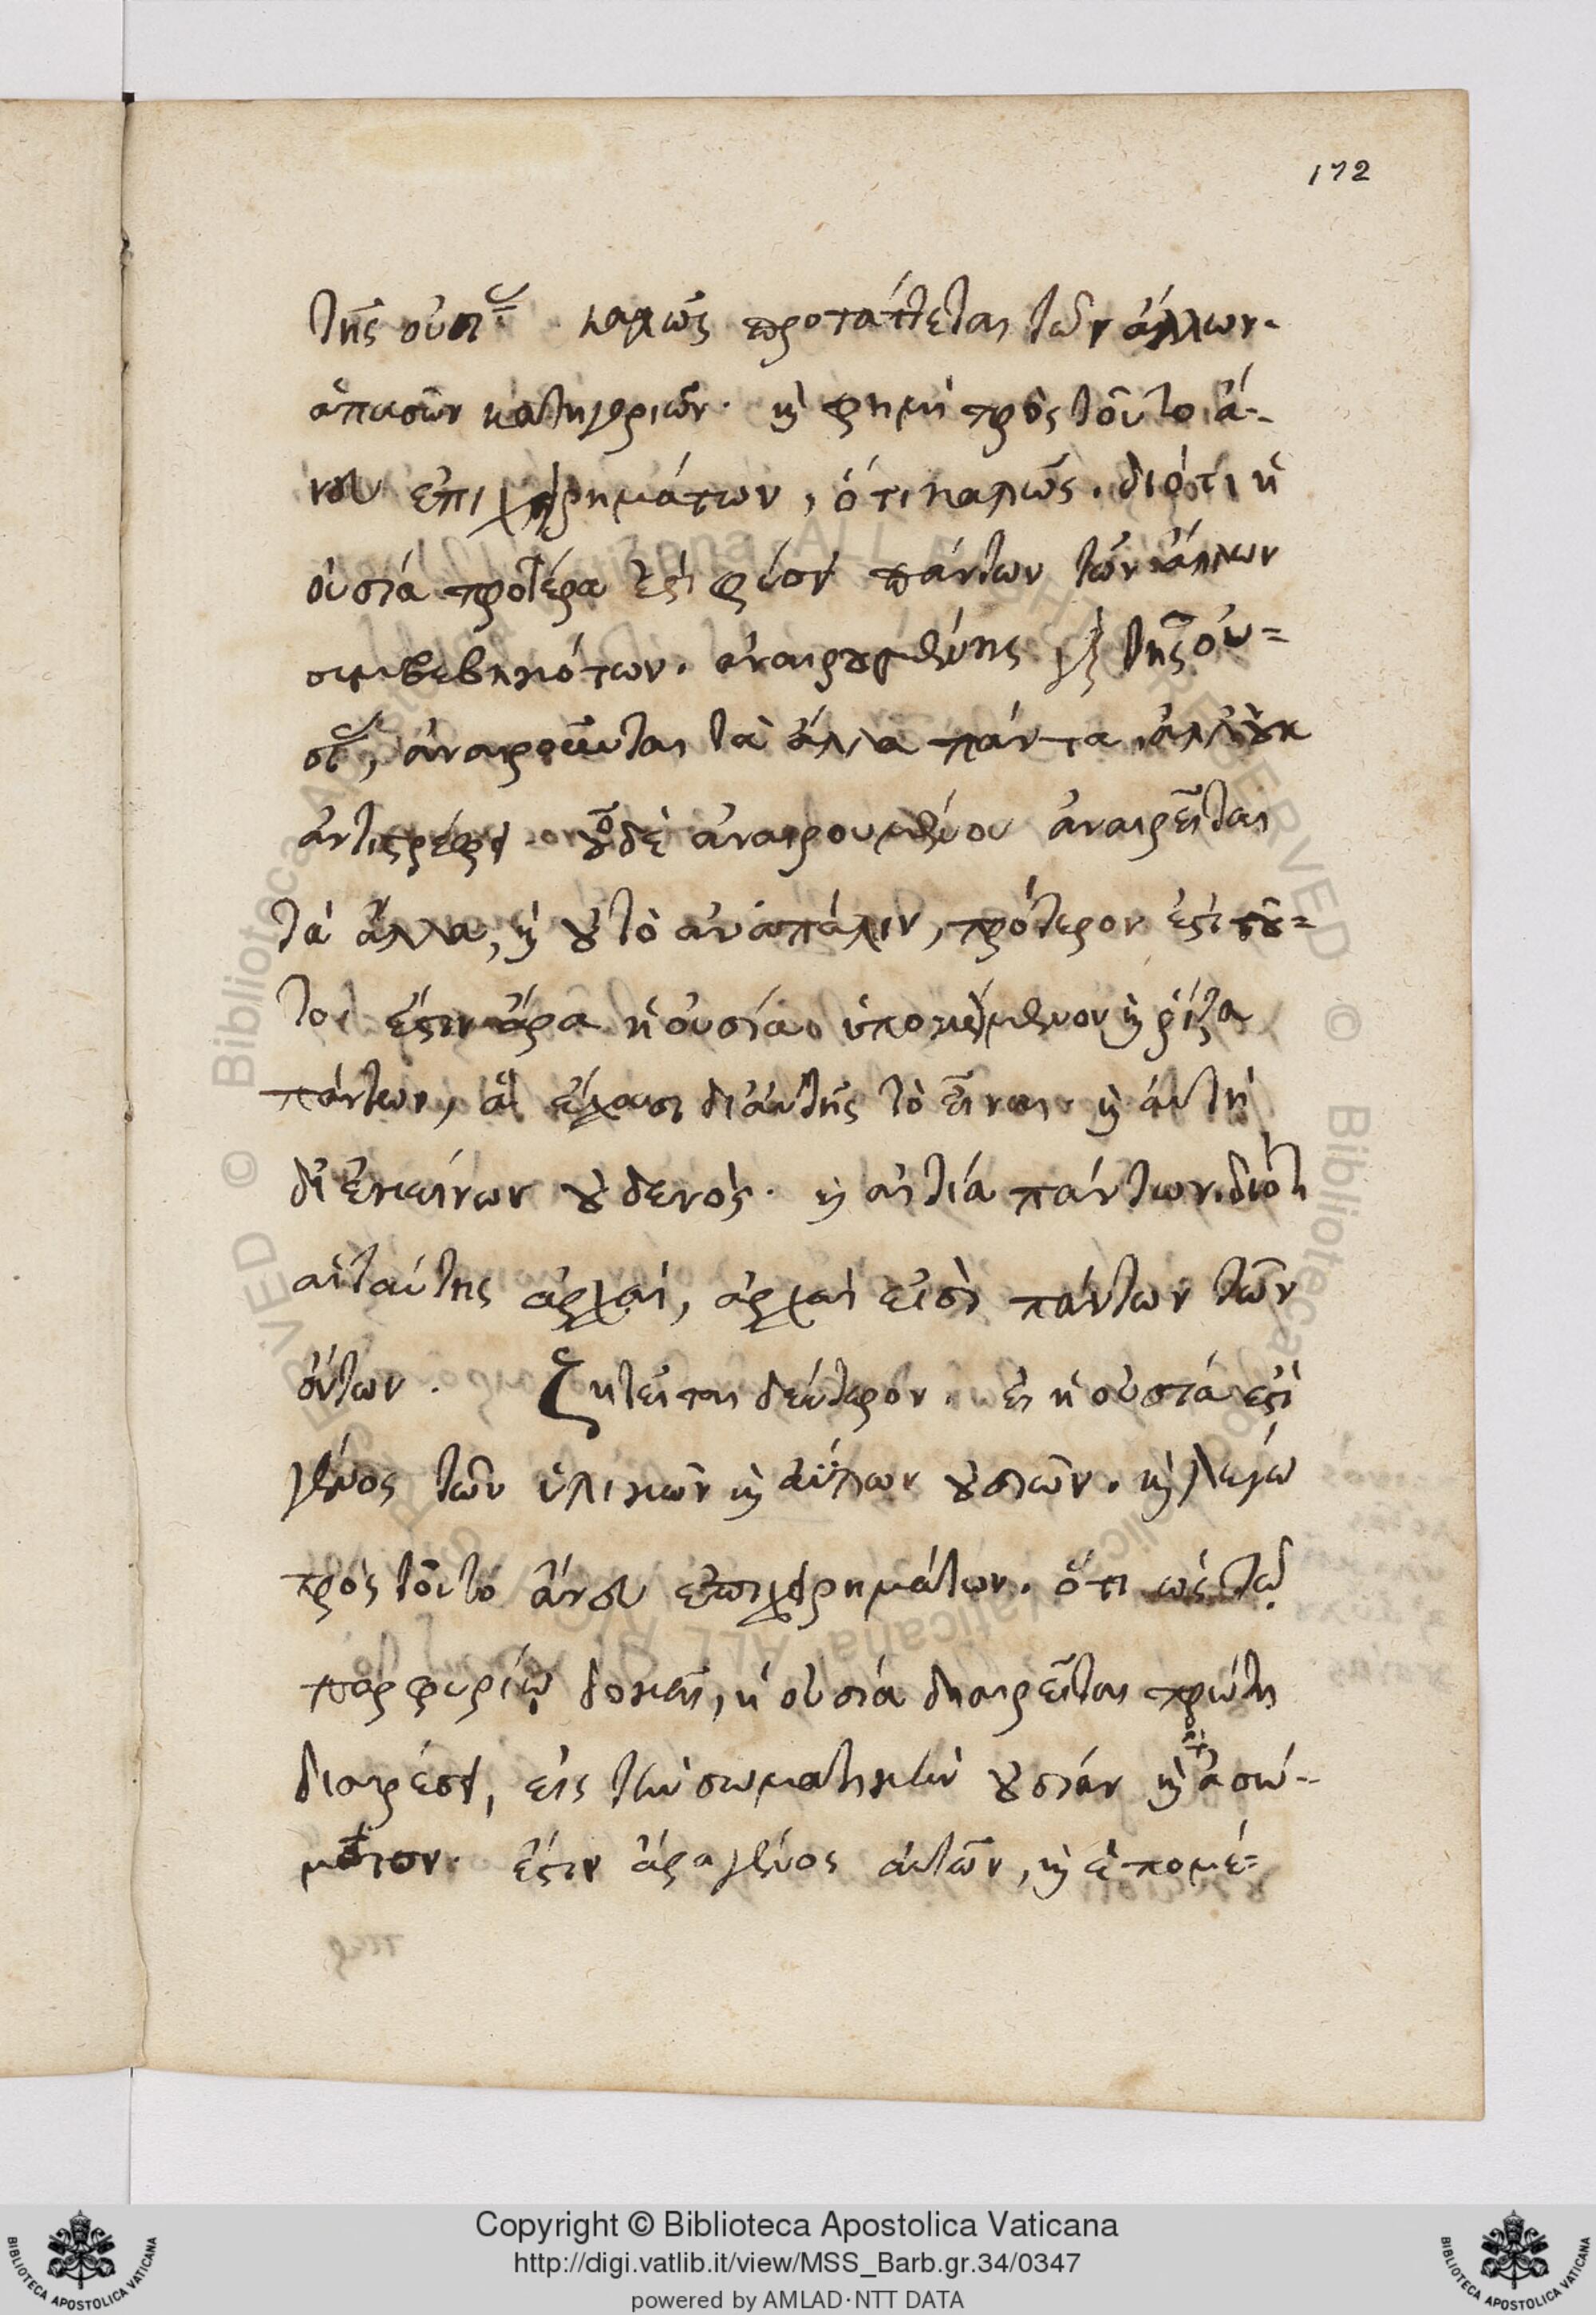 172
τῆς οὐσίας καλῶς προτάττεται τῶν ἄλλων
ἁπασῶν κατηγοριῶν. καὶ φημὶ πρὸς τοῦτο ἄ-
νευ ἐπιχειρημάτων, ὅτι καλῶς. διότι ἡ
οὐσία προτέρα ἐστὶ φύσει πάντων τῶν ἄλλων
συμβεβηκότων. ἀναιρουμένης γὰρ τῆς οὐ-
σίας, ἀναιροῦνται τὰ ἄλλα πάντα, ἀλλ' οὐκ
ἀντιστρέφει. οὗ δὲ ἀναιρουμένου ἀναιρεῖται
τὰ ἄλλα, καὶ οὐ τὸ ἀνάπαλιν, πρότερον ἐστὶ τοῦ-
το. ἔστιν ἄρα ἡ οὐσία ὑποκείμενον καὶ ῥίζα
πάντων, ἃ ἔχουσι δι' αὐτῆς τὸ εἶναι. καὶ αὐτὴ
δι' ἐκείνων οὐδενός. καὶ αἰτία πάντων. διότι
αἱ ταύτης ἀρχαί, ἀρχαὶ εἰσὶ πάντων τῶν
ὄντων. Ζητεῖται δεύτερον. εἰ ἡ οὐσία ἐστὶ
γένος τῶν ὑλικῶν καὶ ἀΰλων οὐσιῶν. καὶ λέγω
πρὸς τοῦτο ἄνευ ἐπιχειρημάτων. ὅτι ὡς τῷ
πορφυρίῳ δοκεῖ, ἡ οὐσία διαιρεῖται πρώτῃ
διαιρέσει, εἰς τὴν σωματικὴν οὐσίαν καὶ ἀσώ-
ματον. ἔστιν ἄρα γένος αὐτῶν, καὶ ἑπομέ-
Copyright © Biblioteca Apostolica Vaticana
http://digi.vatlib.it/view/MSS_Barb.gr.34/0347
powered by AMLAD·NTT DATA